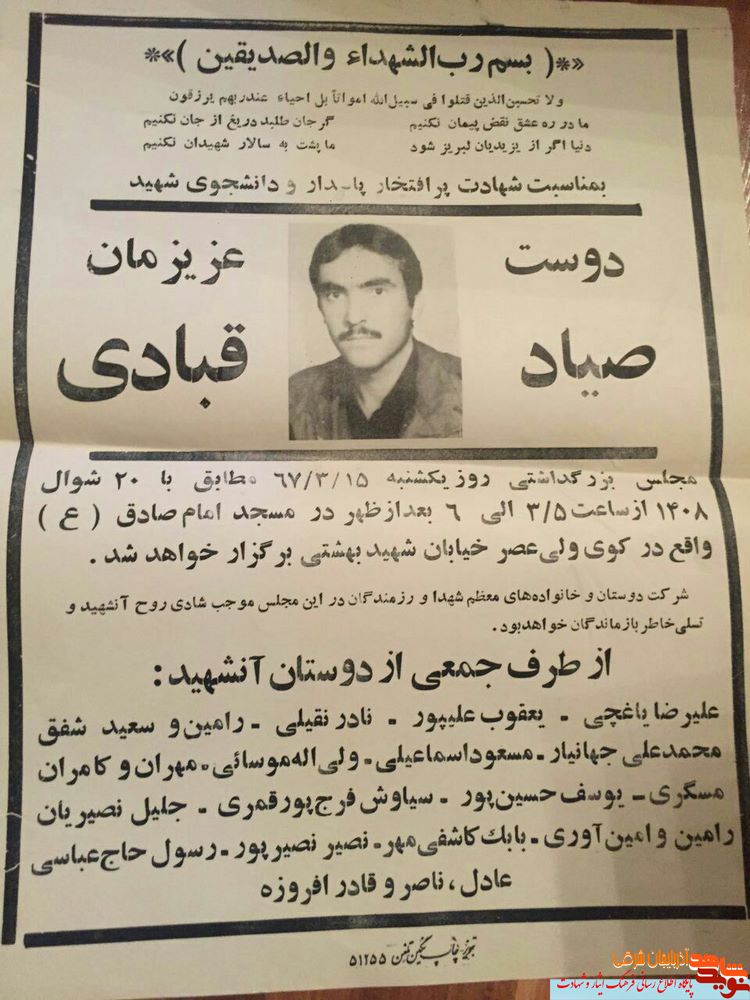 «*( بسم رب الشهداء والصدیقین )*»
ولا تحسبن الذین قتلوا فی سبیل الله امواتاً بل احیاء عند ربهم یرزقون
ما در ره عشق نقض پیمان نکنیم گر جان طلبد دریغ از جان نکنیم
دنیا اگر از یزیدیان لبریز شود ما پشت به سالار شهیدان نکنیم
بمناسبت شهادت پر افتخار پاسدار و دانشجوی شهید
دوست عزیزمان
صیاد قبادی
مجلس بزرگداشتی روز یکشنبه ۶۷/۳/۱۵ مطابق با ۲۰ شوال
۱۴۰۸ از ساعت ۳/۵ الی ۶ بعدازظهر در مسجد امام صادق (ع)
واقع در کوی ولی‌عصر خیابان شهید بهشتی برگزار خواهد شد.
شرکت دوستان و خانواده‌های معظم شهدا و رزمندگان در این مجلس موجب شادی روح آنشهید و
تسلی خاطر بازماندگان خواهد بود.
از طرف جمعی از دوستان آنشهید:
علیرضا یاغچی ـ یعقوب علیپور ـ نادر نقیلی ـ رامین و سعید شفق
محمدعلی جهانیار ـ مسعود اسماعیلی ـ ولی‌اله موسائی ـ مهران و کامران
مسگری ـ یوسف حسین‌پور ـ سیاوش فرج‌پور قمری ـ جلیل نصیریان
رامین و امین آوری ـ بابك کاشفی‌مهر ـ نصیر نصیرپور ـ رسول حاج‌عباسی
عادل، ناصر و قادر افروزه
تبریز چاپ نگین تلفن ۵۱۲۵۵
نوید شاهد آذربایجان شرقی
پایگاه اطلاع رسانی فرهنگ ایثار و شهادت